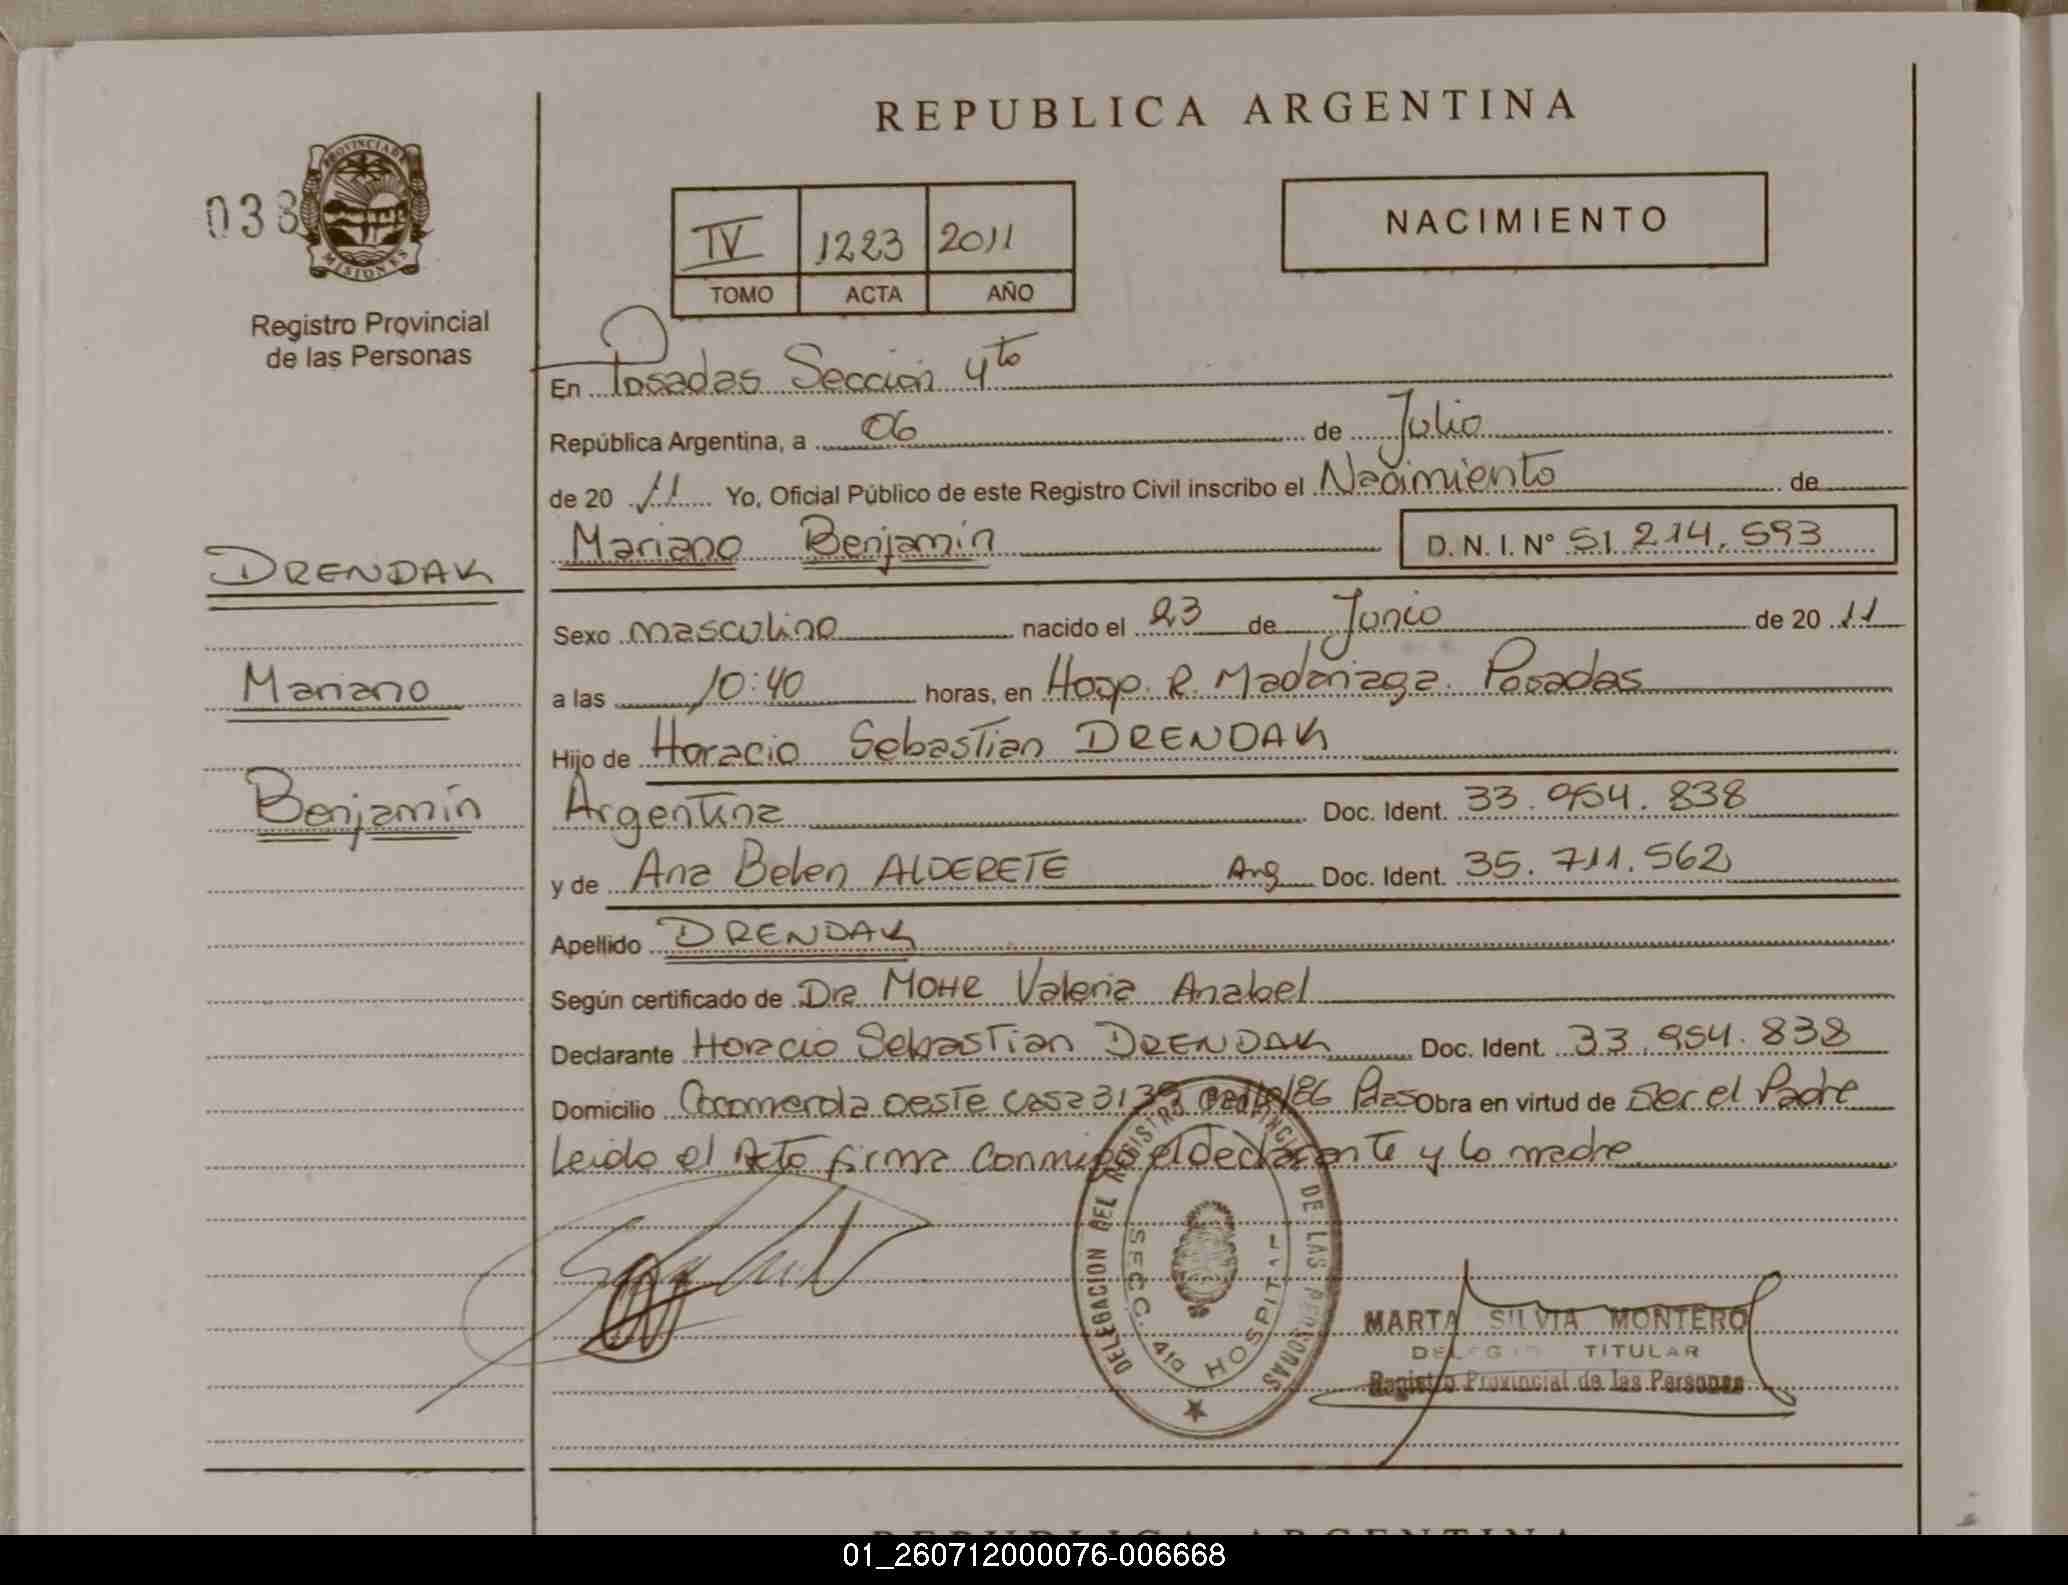 REPUBLICA ARGENTINA
038
PROVINCIA DE MISIONES
Registro Provincial
de las Personas
IV 1223 2011
TOMO ACTA AÑO
NACIMIENTO
En Posadas Sección 4to
República Argentina, a 06 de Julio
de 20 11 Yo, Oficial Público de este Registro Civil inscribo el Nacimiento de
Mariano Benjamín D. N. I. N° 51.214.593
DRENDAK
Mariano
Benjamín
Sexo masculino nacido el 23 de Junio de 20 11
a las 10:40 horas, en Hosp. R. Madariaga. Posadas
Hijo de Horacio Sebastian DRENDAK
Argentina Doc. Ident. 33.954.838
y de Ana Belen ALDERETE Arg Doc. Ident. 35.711.562
Apellido DRENDAK
Según certificado de Dra MOHR Valeria Anabel
Declarante Horacio Sebastian DRENDAK Doc. Ident. 33.954.838
Domicilio Cocomerola oeste casa 3139 186 Pdas Obra en virtud de Ser el Padre
Leido el Acto firma conmigo el declarante y la madre
DELEGACION DEL REGISTRO PROVINCIAL DE LAS PERSONAS
SECC. 4ta HOSPITAL
MARTA SILVIA MONTERO
TITULAR
Registro Provincial de las Personas
REPUBLICA ARGENTINA
01_260712000076-006668